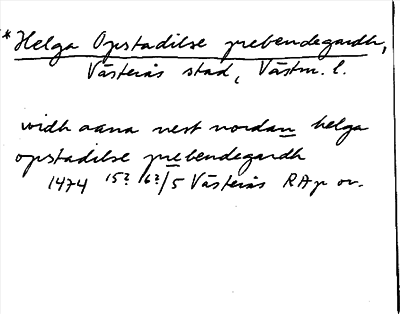 * Helga Opstadilse prebendegardh,
Västerås stad, Västm. l.
widh aana vest nordan helga
opstadilse prebendegardh
1474 15? 16?/5 Västerås RAp or.